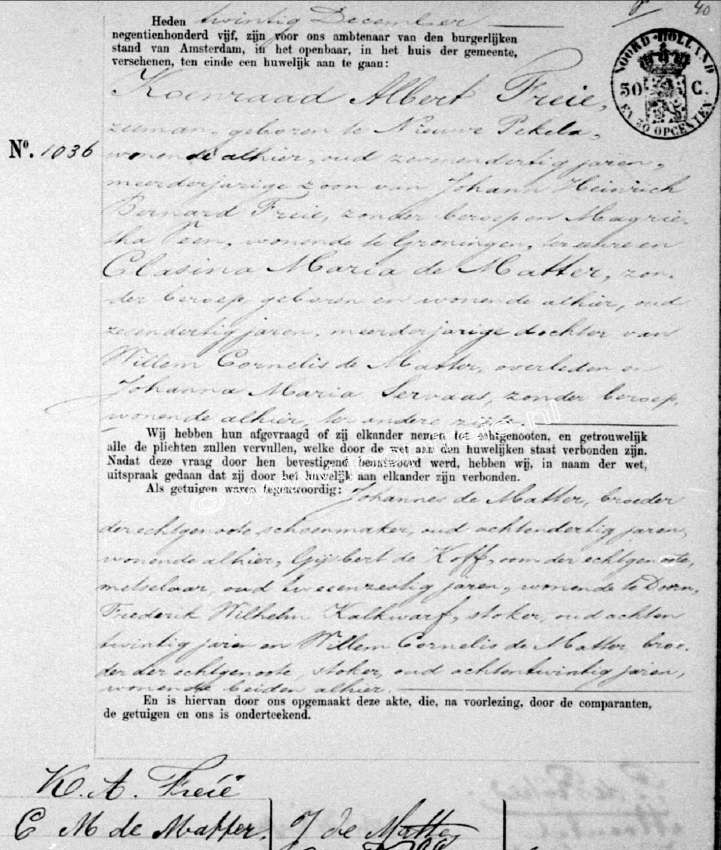 40
Heden twintig December
negentienhonderd vijf, zijn voor ons ambtenaar van den burgerlijken
stand van Amsterdam, in het openbaar, in het huis der gemeente,
verschenen, ten einde een huwelijk aan te gaan:
NOORD-HOLLAND
50 C.
EN 50 OPCENTEN
Koenraad Albert Freie,
zeeman, geboren te Nieuwe Pekela,
No. 1036
wonende alhier, oud zevenendertig jaren,
meerderjarige zoon van Johann Heinrich
Bernard Freie, zonder beroep en Magrie-
tha Veen, wonende te Groningen, ter eenre en
Clasina Maria de Matter, zon-
der beroep, geboren en wonende alhier, oud
zesendertig jaren, meerderjarige dochter van
Willem Cornelis de Matter, overleden en
Johanna Maria Servaas, zonder beroep,
wonende alhier, ter andere zijde.
Wij hebben hun afgevraagd of zij elkander nemen tot echtgenooten, en getrouwelijk
alle de plichten zullen vervullen, welke door de wet aan den huwelijken staat verbonden zijn.
Nadat deze vraag door hen bevestigend beantwoord werd, hebben wij, in naam der wet,
uitspraak gedaan dat zij door het huwelijk aan elkander zijn verbonden.
Als getuigen waren tegenwoordig: Johannes de Matter, broeder
der echtgenoote, schoenmaker, oud achtendertig jaren,
wonende alhier, Gijsbert de Koff, oom der echtgenoote,
metselaar, oud tweeenzestig jaren, wonende te Doorn,
Frederik Wilhelm Kalkwarf, stoker, oud achten
twintig jaren en Willem Cornelis de Matter, broe-
der der echtgenoote, stoker, oud achtentwintig jaren,
wonende beiden alhier.
En is hiervan door ons opgemaakt deze akte, die, na voorlezing, door de comparanten,
de getuigen en ons is onderteekend.
K. A. Freië
C M de Matter. J de Matter